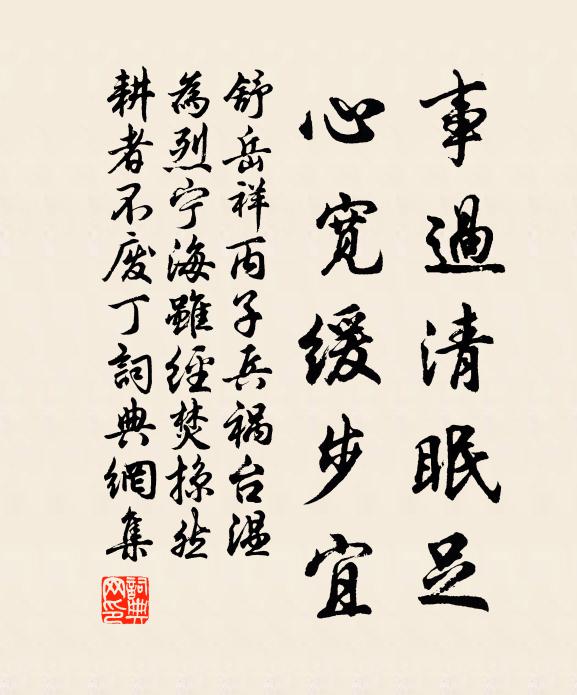 事過清眠足
心寬緩步宜
舒岳祥丙子兵禍台溫
為烈宁海雖經焚掠然
耕者不废丁詞典網集
詞典網印